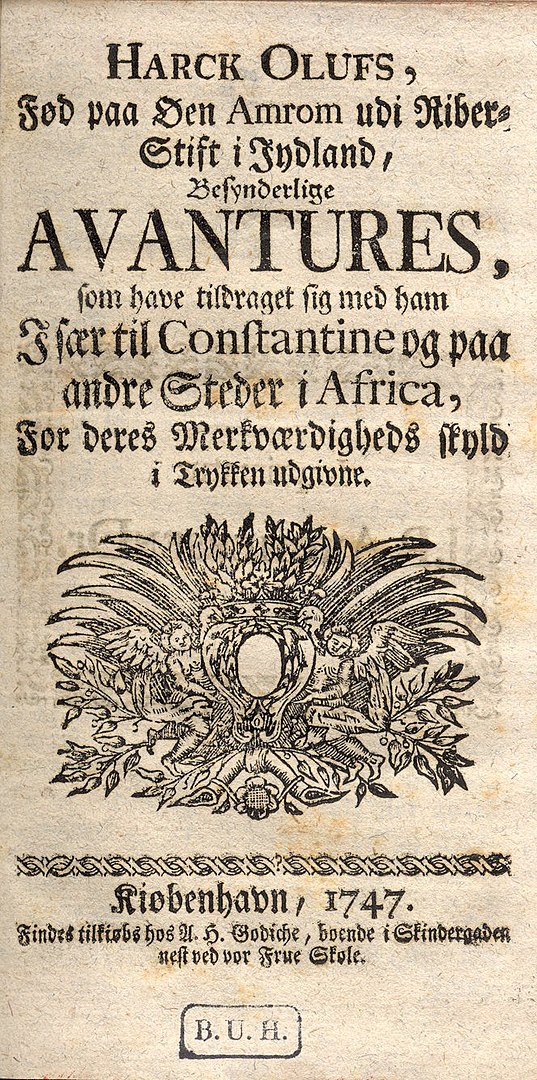 HARCK OLUFS,
Fød paa Øen Amrom udi Riber-
Stift i Jydland,
Besynderlige
AVANTURES,
som have tildraget sig med ham
I sær til Constantine og paa
andre Steder i Africa,
For deres Merkværdigheds skyld
i Trykken udgivne.
Kiøbenhavn, 1747.
Findes tilkiøbs hos A. H. Godiche, boende i Skindergaden
nest ved vor Frue Skole.
B. U. H.